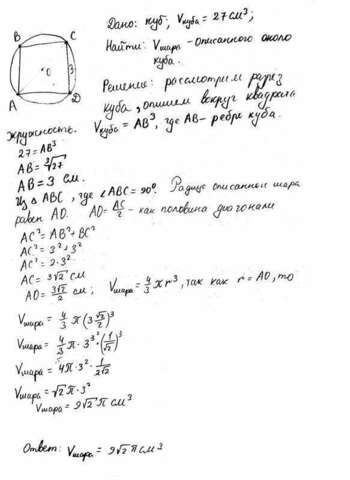 Дано: куб, Vкуба = 27 см³;
Найти: Vшара - описанного около куба.
B C
O 3
A D
Решение: рассмотрим разрез
куба, опишем вокруг квадрата
окружность. Vкуба = AB³, где AB - ребро куба.
27 = AB³
AB = ∛27
AB = 3 см.
Из △ ABC, где ∠ABC = 90°. Радиус описанного шара
равен AO. AO = AC/2 - как половина диагонали
AC² = AB² + BC²
AC² = 3² + 3²
AC² = 2·3²
AC = 3√2 см
AO = 3√2/2 см; Vшара = 4/3 π r³, так как r = AO, то
Vшара = 4/3 π (3 √2/2)³
Vшара = 4/3 π · 3³ · (1/√2)³
Vшара = 4π · 3² · 1/2√2
Vшара = √2 π · 3²
Vшара = 9√2 π см³
Ответ: Vшара = 9√2 π см³